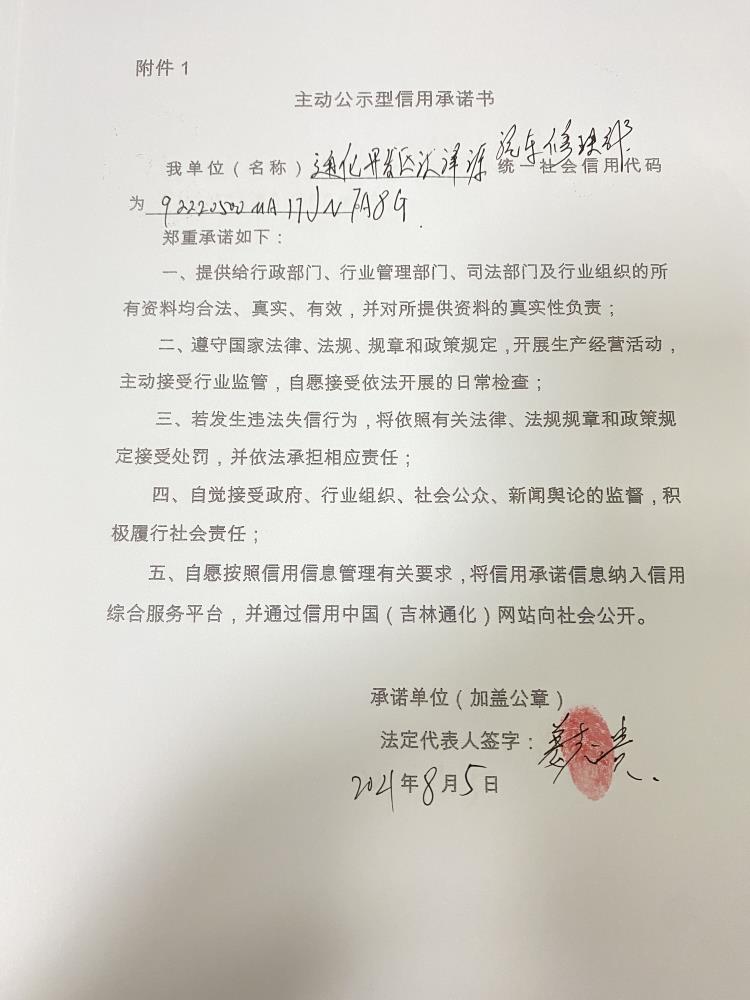 附件 1
主动公示型信用承诺书
我单位（名称）通化开发区汰津源汽车修理部统一社会信用代码
为 92220500MA17JN7A8G.
郑重承诺如下：
一、提供给行政部门、行业管理部门、司法部门及行业组织的所
有资料均合法、真实、有效，并对所提供资料的真实性负责；
二、遵守国家法律、法规、规章和政策规定，开展生产经营活动，
主动接受行业监管，自愿接受依法开展的日常检查；
三、若发生违法失信行为，将依照有关法律、法规规章和政策规
定接受处罚，并依法承担相应责任；
四、自觉接受政府、行业组织、社会公众、新闻舆论的监督，积
极履行社会责任；
五、自愿按照信用信息管理有关要求，将信用承诺信息纳入信用
综合服务平台，并通过信用中国（吉林通化）网站向社会公开。
承诺单位（加盖公章）
法定代表人签字：
2021年8月5日